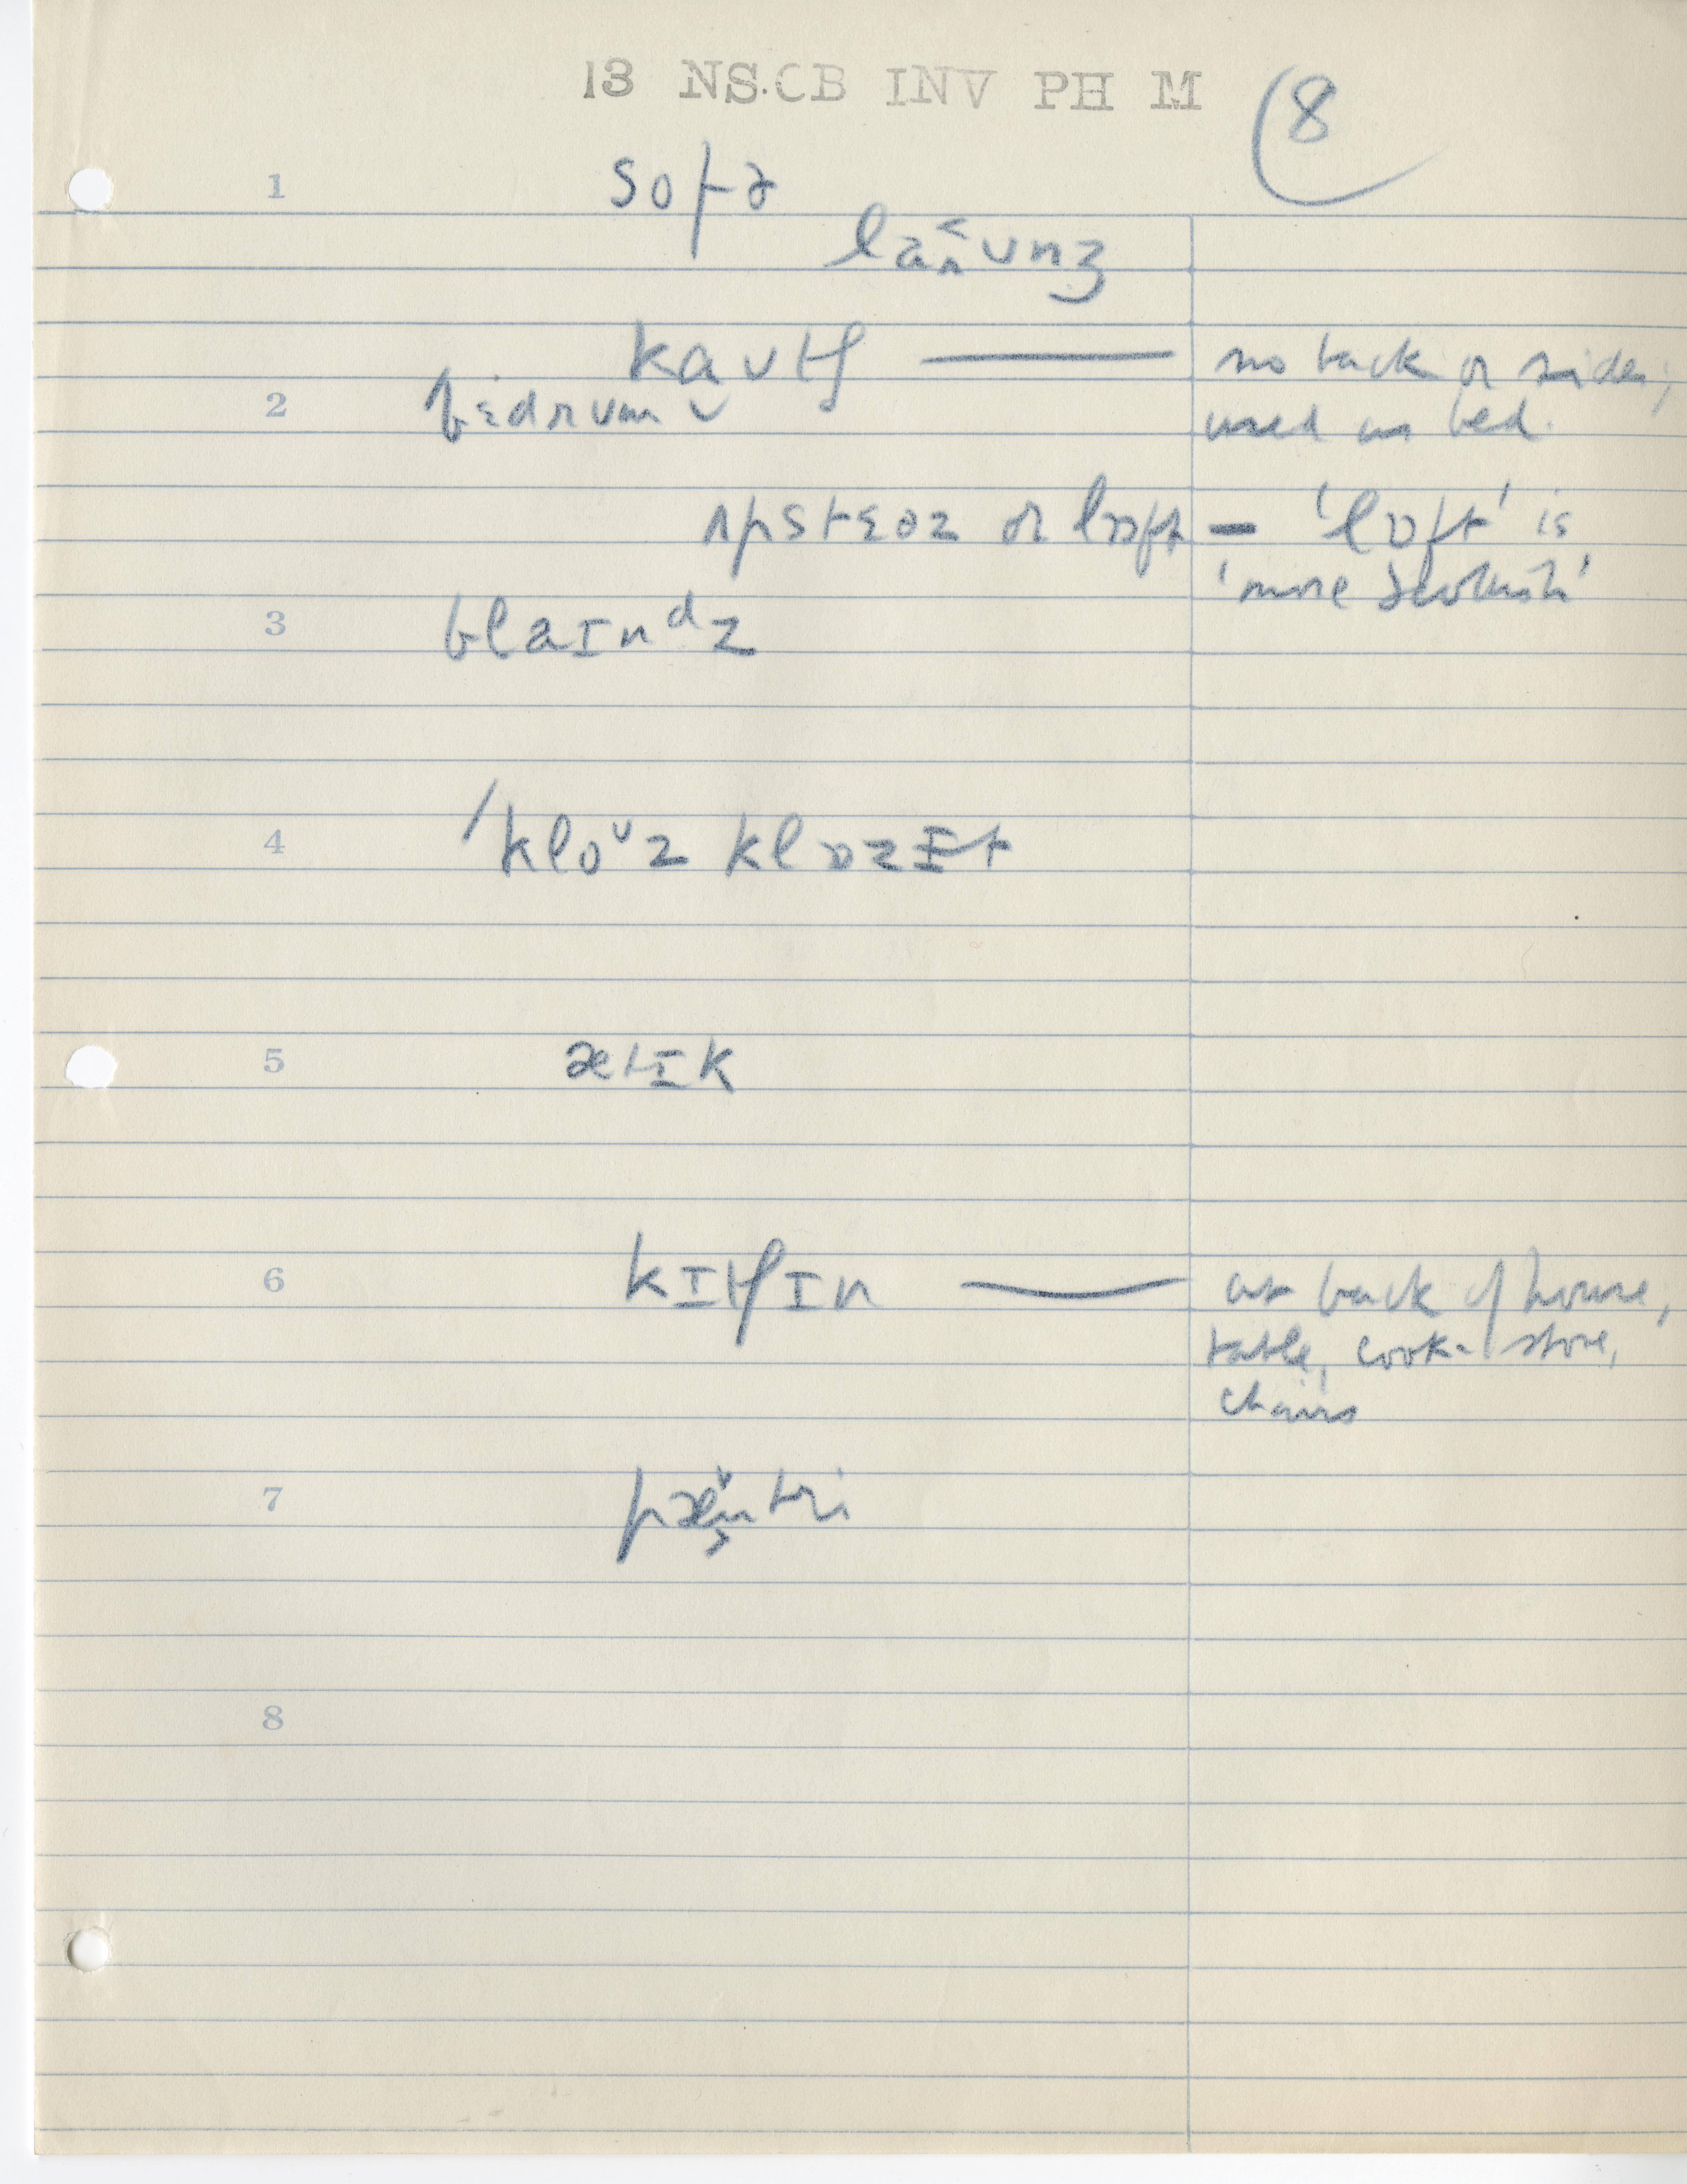 13 NS.CB INV PH M
8
1 sofə
laʊnʒ
kaʊtʃ — no back or sides;
2 bɛdrum used as bed.
ʌpstɛəz or lɒft — 'lɒft' is
'more Scottish'
3 blaɪnᵈz
4 'kloᶷz klɒzɪt
5 ætɪk
6 kɪtʃɪn — at back of house,
table, cook-stove,
chairs
7 pæntri
8